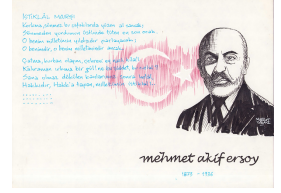 İSTİKLÂL MARŞI
Korkma, sönmez bu şafaklarda yüzen al sancak;
Sönmeden yurdumun üstünde tüten en son ocak.
O benim milletimin yıldızıdır parlayacak;
O benimdir, o benim milletimindir ancak.
Çatma, kurban olayım, çehreni ey nazlı hilâl!
Kahraman ırkıma bir gül!
Sana olmaz dökülen kanlarımız sonra helâl,
Hakkıdır, Hakk'a tapan, milletimin istiklâl!
mehmet akif ersoy
1873 - 1936